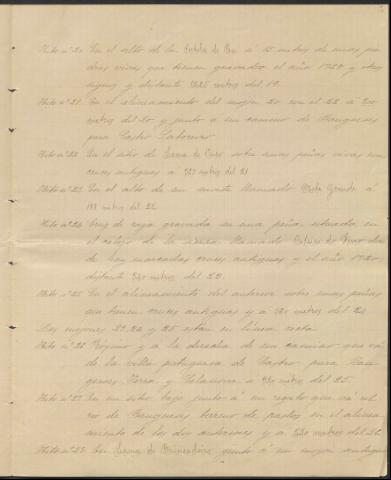 Hito nº 20. En el alto de la Costela de Pau á 15 metros de unas pe-
dras vivas que tienen gravado el año 1720 y otros
signos y distante 325 metros del 19.
Hito nº 21. En el alineamiento del mojon 20 con el 22 á 300
metros del 20 y junto á un camino de Bangueses
para Castro Laboreiro
Hito nº 22. En el sitio de sobre unas peñas vivas con
cruces antiguas á 323 metros del 21
Hito nº 23. En el alto de un monte llamado Grande á
198 metros del 22
Hito nº 24. Cruz de raya gravada en una peña situada en
el cotejo de la llamado don-
de hay marcadas cruces antiguas y el año 1720,
distante 340 metros del 23.
Hito nº 25. En el alineamiento del anterior sobre unas peñas
con cruces antiguas y á metros del 24
Los mojones 23, 24 y 25 están en linea recta.
Hito nº 26. Próximo y á la derecha de un camino que va
de la villa portuguesa de Castro para Ban-
gueses, Verea y Celanova á 430 metros del 25.
Hito nº 27. En un sitio bajo junto á un regato que va al
rio de Bangueses terreno de pastos en el alinea-
miento de los dos anteriores y á 330 metros del 26
Hito nº 28. En junto á un mojon antiguo